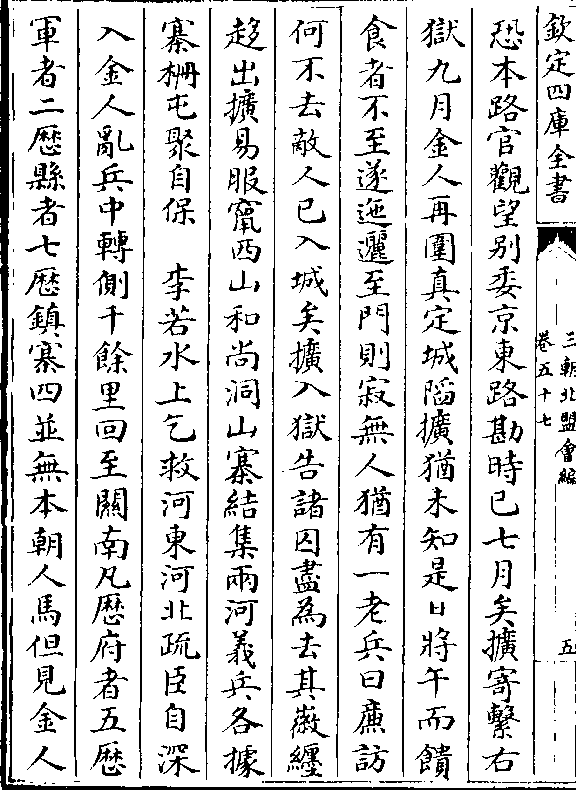 欽定四庫全書
三朝北盟會編
卷五十七
五
恐本路官觀望别委京東路勘時已七月矣擴寄繫右
獄九月金人再圍真定城䧟擴猶未知是日將午而饋
食者不至遂迤邐至門則寂無人猶有一老兵曰亷訪
何不去敵人已入城矣擴入獄告諸囚盡為去其徽纆
趍出擴易服竄西山和尚洞山寨結集兩河義兵各據
寨栅屯聚自保　李若水上乞救河東河北疏臣自深
入金人亂兵中轉側千餘里回至關南凡歴府者五歴
軍者二歴縣者七歴鎮寨四並無本朝人馬但見金人